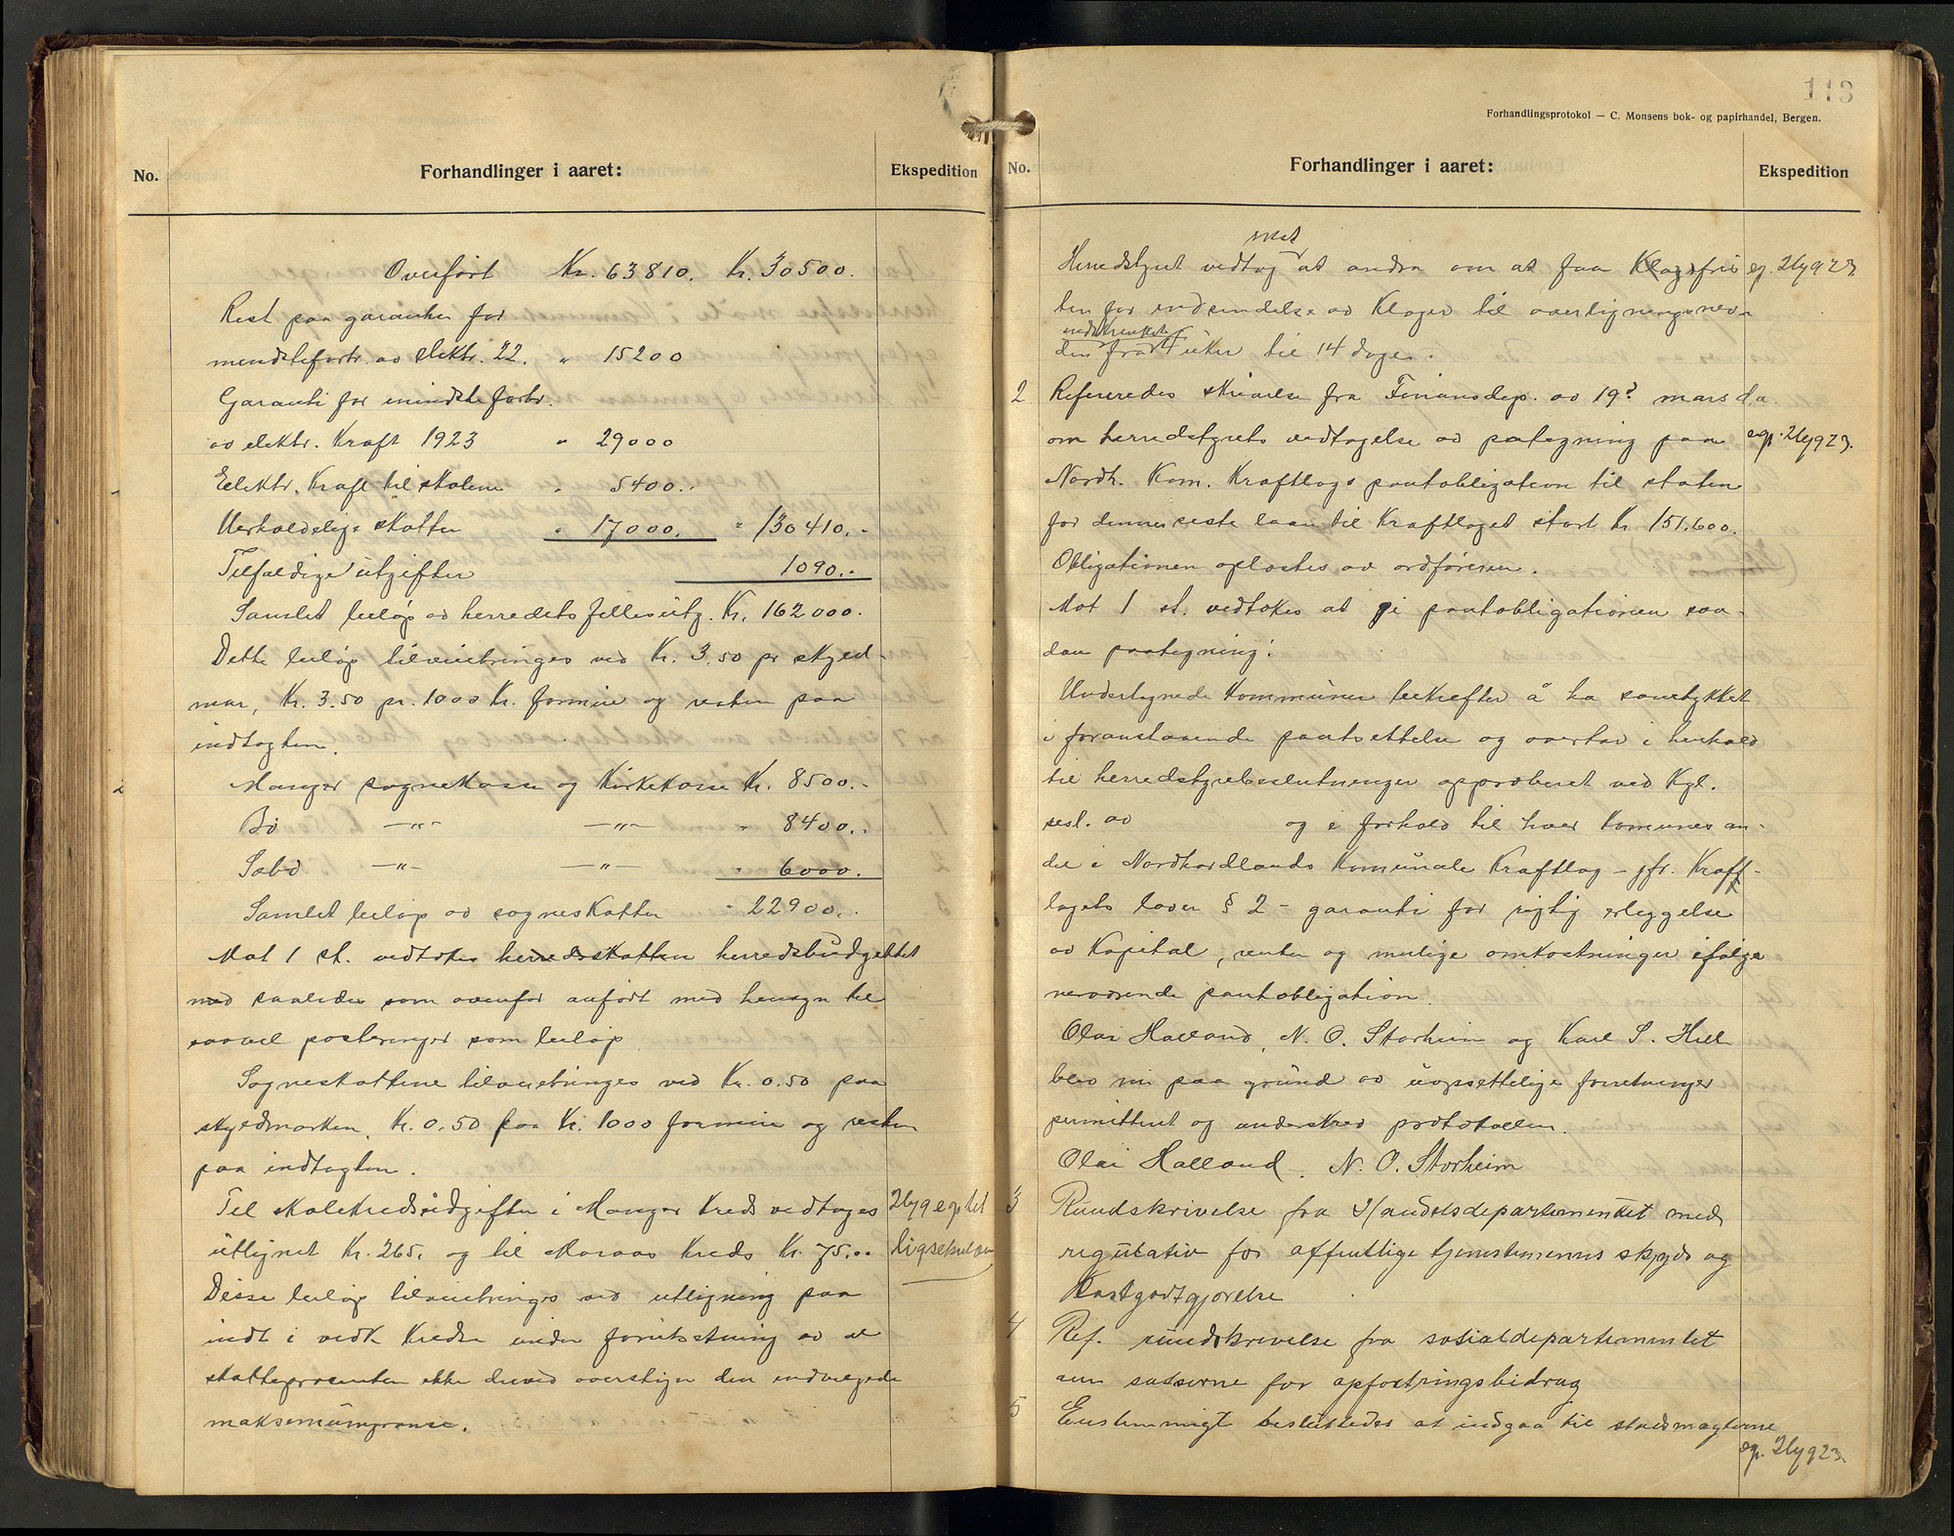 No.
Forhandlinger i aaret:
Ekspedition
Overført Kr. 63810. Kr. 30500.
Rest paa garantien for
mindsteforbr. av elektr. 22. " 15200
Garanti for mindsteforbr.
av elektr. kraft 1923 " 29000
Elektr. kraft til skolene " 5400.-
Uerholdelige skatter " 17000. " 130410.-
Tilfældige utgifter 1090.-
Samlet beløp av herredets fellesutg. Kr. 162000.
Dette beløp tilveiebringes ved Kr. 3.50 pr skyld-
mar, Kr. 3.50 pr. 1000 Kr. formue og resten paa
indtægten.
Manger sognekasse og Kirkekasse Kr. 8500.-
Bø —"— —"— " 8400.-
Sæbø —"— —"— " 6000.
Samlet beløp av sogneskatter " 22900.-
Mot 1 st. vedtokes herredsskatten herredsbudgettet
med saaledes som ovenfor anført med hensyn til
saavel posteringer som beløp.
Sogneskattene tilveiebringes ved Kr. 0.50 paa
skyldmarken, Kr. 0.50 paa Kr. 1000 formue og resten
paa indtægten.
Til skolekredsudgifter i Manger kreds vedtoges
utlignet Kr. 265. og til Maraas kreds Kr. 75.-
Disse beløp tilveiebringes ved utligning paa
indt i vedk kredse under forutsetning av at
skatteprosenten ikke derved overstiger den indvilgede
maksimumgrænse.
113
Forhandlingsprotokol — C. Monsens bok- og papirhandel, Bergen.
No.
Forhandlinger i aaret:
Ekspedition
mot
Herredstyret vedtog at andra om at faa Klagefris
ten for indsendelse av klager til overligningsnevn
indskrænket
den fra 4 uker til 14 dage.
2 Refereredes skrivelse fra Finansdep. av 19? mars d.a.
om herredstyrets vedtagelse av paategning paa
Nordh. Kom. Kraftlags pantobligation til staten
for dennes siste laan til Kraftlaget stort Kr. 151.600.
Obligationen oplæstes av ordføreren.
Mot 1 st. vedtokes at gi pantobligationen saa-
dan paategning:
Undertegnede kommuner bekræfter å ha samtykket
i foranstaaende pantsettelse og overtar i henhold
til herredstyrebeslutninger approbert ved Kgl.
resl. av og i forhold til hver komunes an-
del i Nordhordlands Komunale Kraftlag - jfr. Kraft-
lagets lover § 2 - garanti for rigtig erleggelse
av Kapital, renter og mulige omkostninger ifølge
nerværende pantobligation.
Olai Halland, N. O. Storheim og Karl S. Hill
blev nu paa grund av uopsettelige forretninger
permitteret og underskrev protokollen.
Olai Halland. N. O. Storheim
3 Rundskrivelse fra Handelsdepartementet med
regulativ for offentlige tjenestemenns skyds og
Kostgodtgjørelse
4 Ref. rundskrivelse fra sosialdepartementet
om satserne for opfostringsbidrag
5 Enstemmigt besluttedes at indgaa til statsmagterne